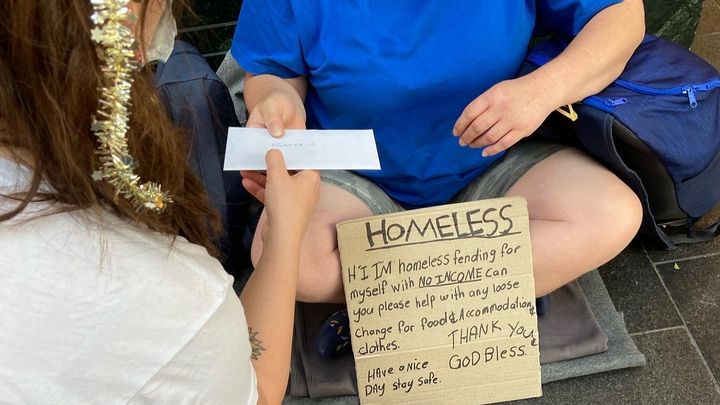 HOMELESS
HI I'M homeless fending for
myself with NO INCOME can
you please help with any loose
Change for food & Accommodation &
clothes.
THANK YOU &
GOD Bless.
HAVE a Nice
DAY stay safe.